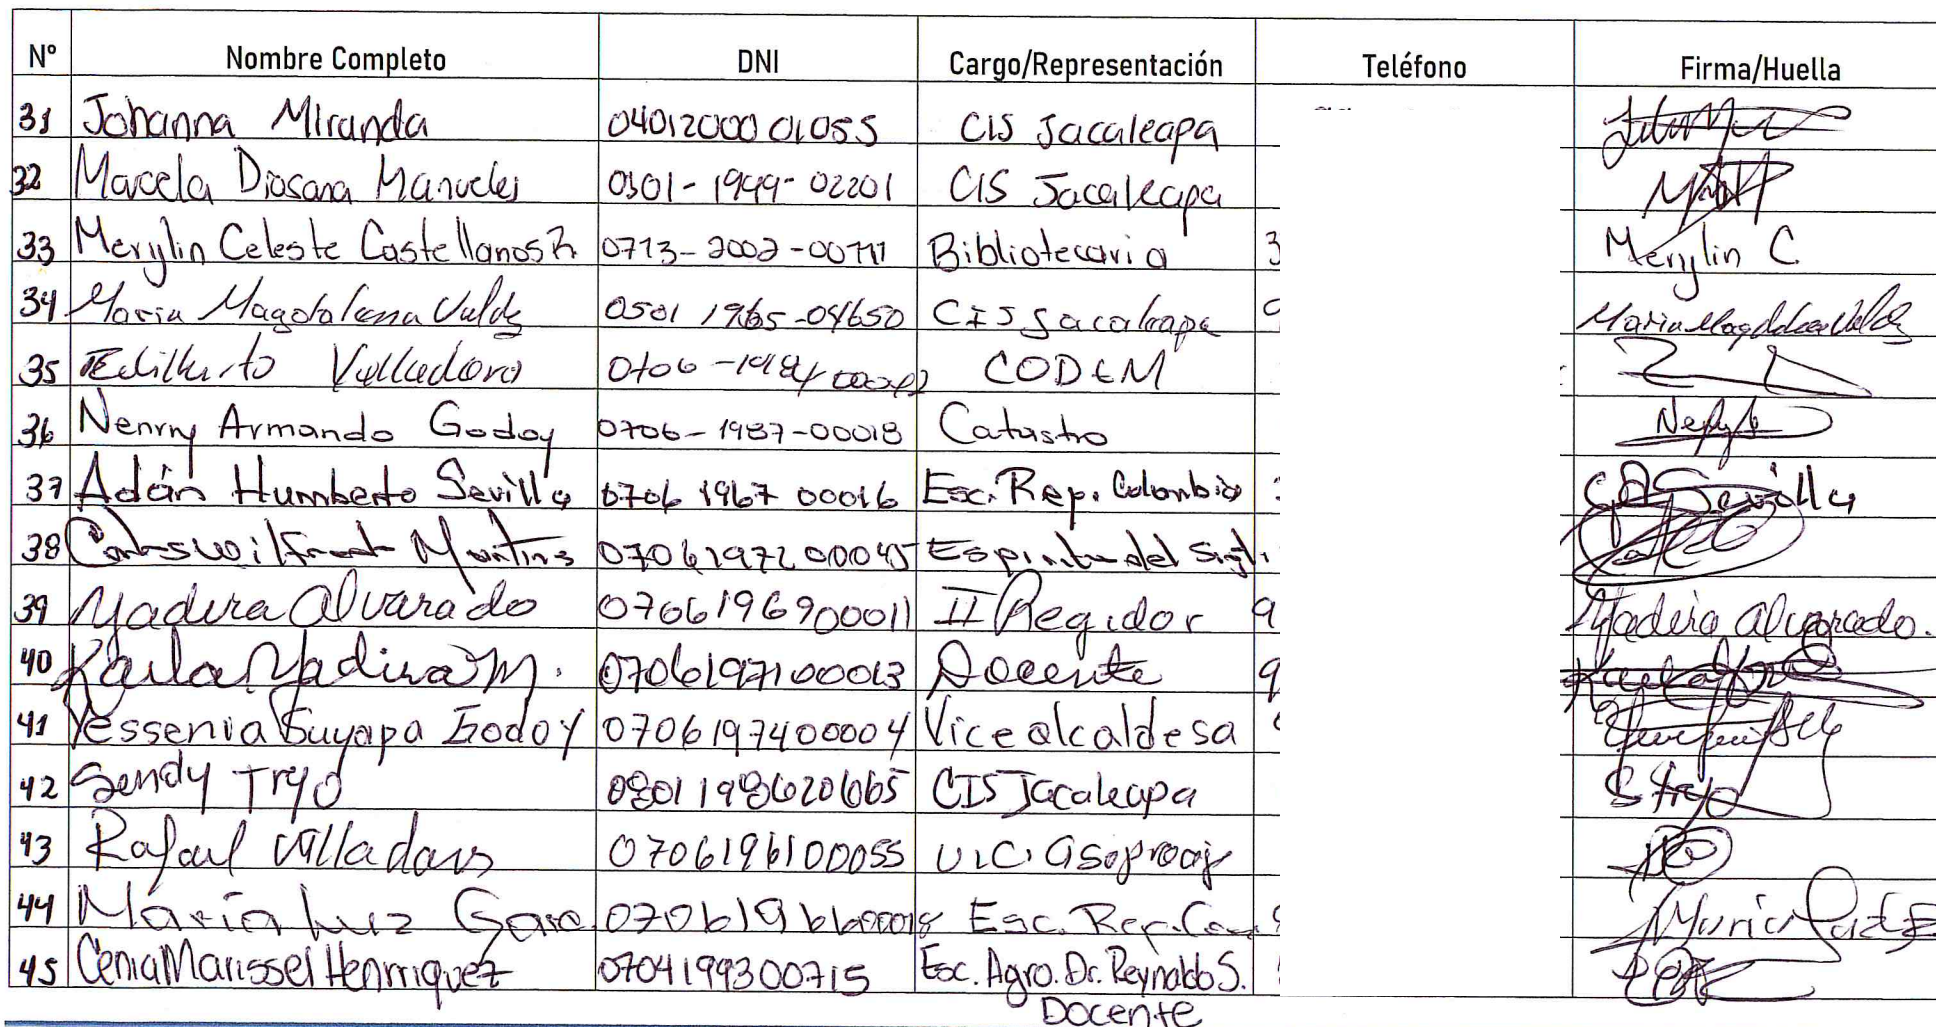 N° Nombre Completo DNI Cargo/Representación Teléfono Firma/Huella
31 Johanna Miranda 0401200001055 CIS Jacaleapa
32 Marcela Diosana Manueles 0301-1999-02201 CIS Jacaleapa
33 Merylin Celeste Castellanos R. 0713-2002-00711 Bibliotecaria 3 Merylin C
34 Maria Magdalena Valdz 0501 1965-04650 CIS Jacaleapa Maria Magdalena Valdz
35 Edilberto Valladares CODEM
36 Nenrry Armando Godoy 0706-1987-00018 Catastro
37 Adán Humberto Sevilla 0706 1967 00016 Esc. Rep. Colombia Sevilla
38 Carlos Wilfredo Martins 0706197200045 Espiritu del Sigl.
39 Yadira Alvarado 0706196900011 II Regidor 9 Yadira Alvarado.
40 Karla Yadira M. 0706197100013 Docente 9
41 Yessenia Suyapa Godoy 0706197400004 Vice alcaldesa
42 Sendy Tryo 0801198620665 CIS Jacaleapa S tryo
43 Rafael Valladares 0706196100055 U.C. asoproaj
44 María Luz Garc. 0706196600018 Esc. Rep. Co María
45 Cenia Marissel Henrriquez 0704199300715 Esc. Agro. Dr. Reynaldo S.
Docente